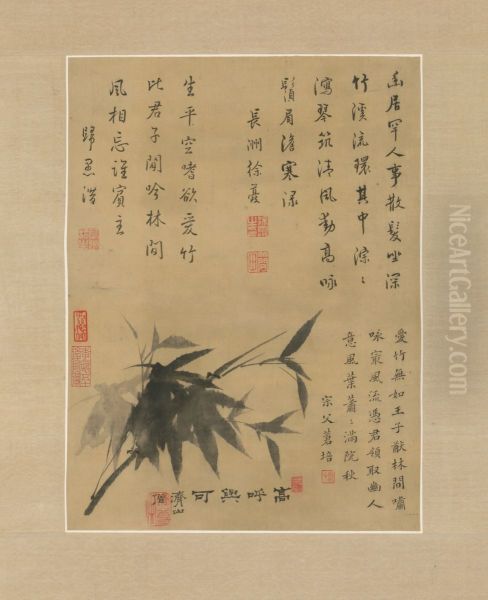 幽居罕人事散髮坐深
竹溪流環其中淙〻
瀉琴筑清風動高咏
鬚眉澹寒渌
長洲徐夔
生平空嗜欲愛竹
此君子閒吟林間
風相忘誰賓主
歸愚潛
愛竹無如王子猷林間嘯
咏冣風流憑君領取幽人
意風葉蕭〻滿院秋
宗父茗培
高呼與可
濟山僧
NiceArtGallery.com